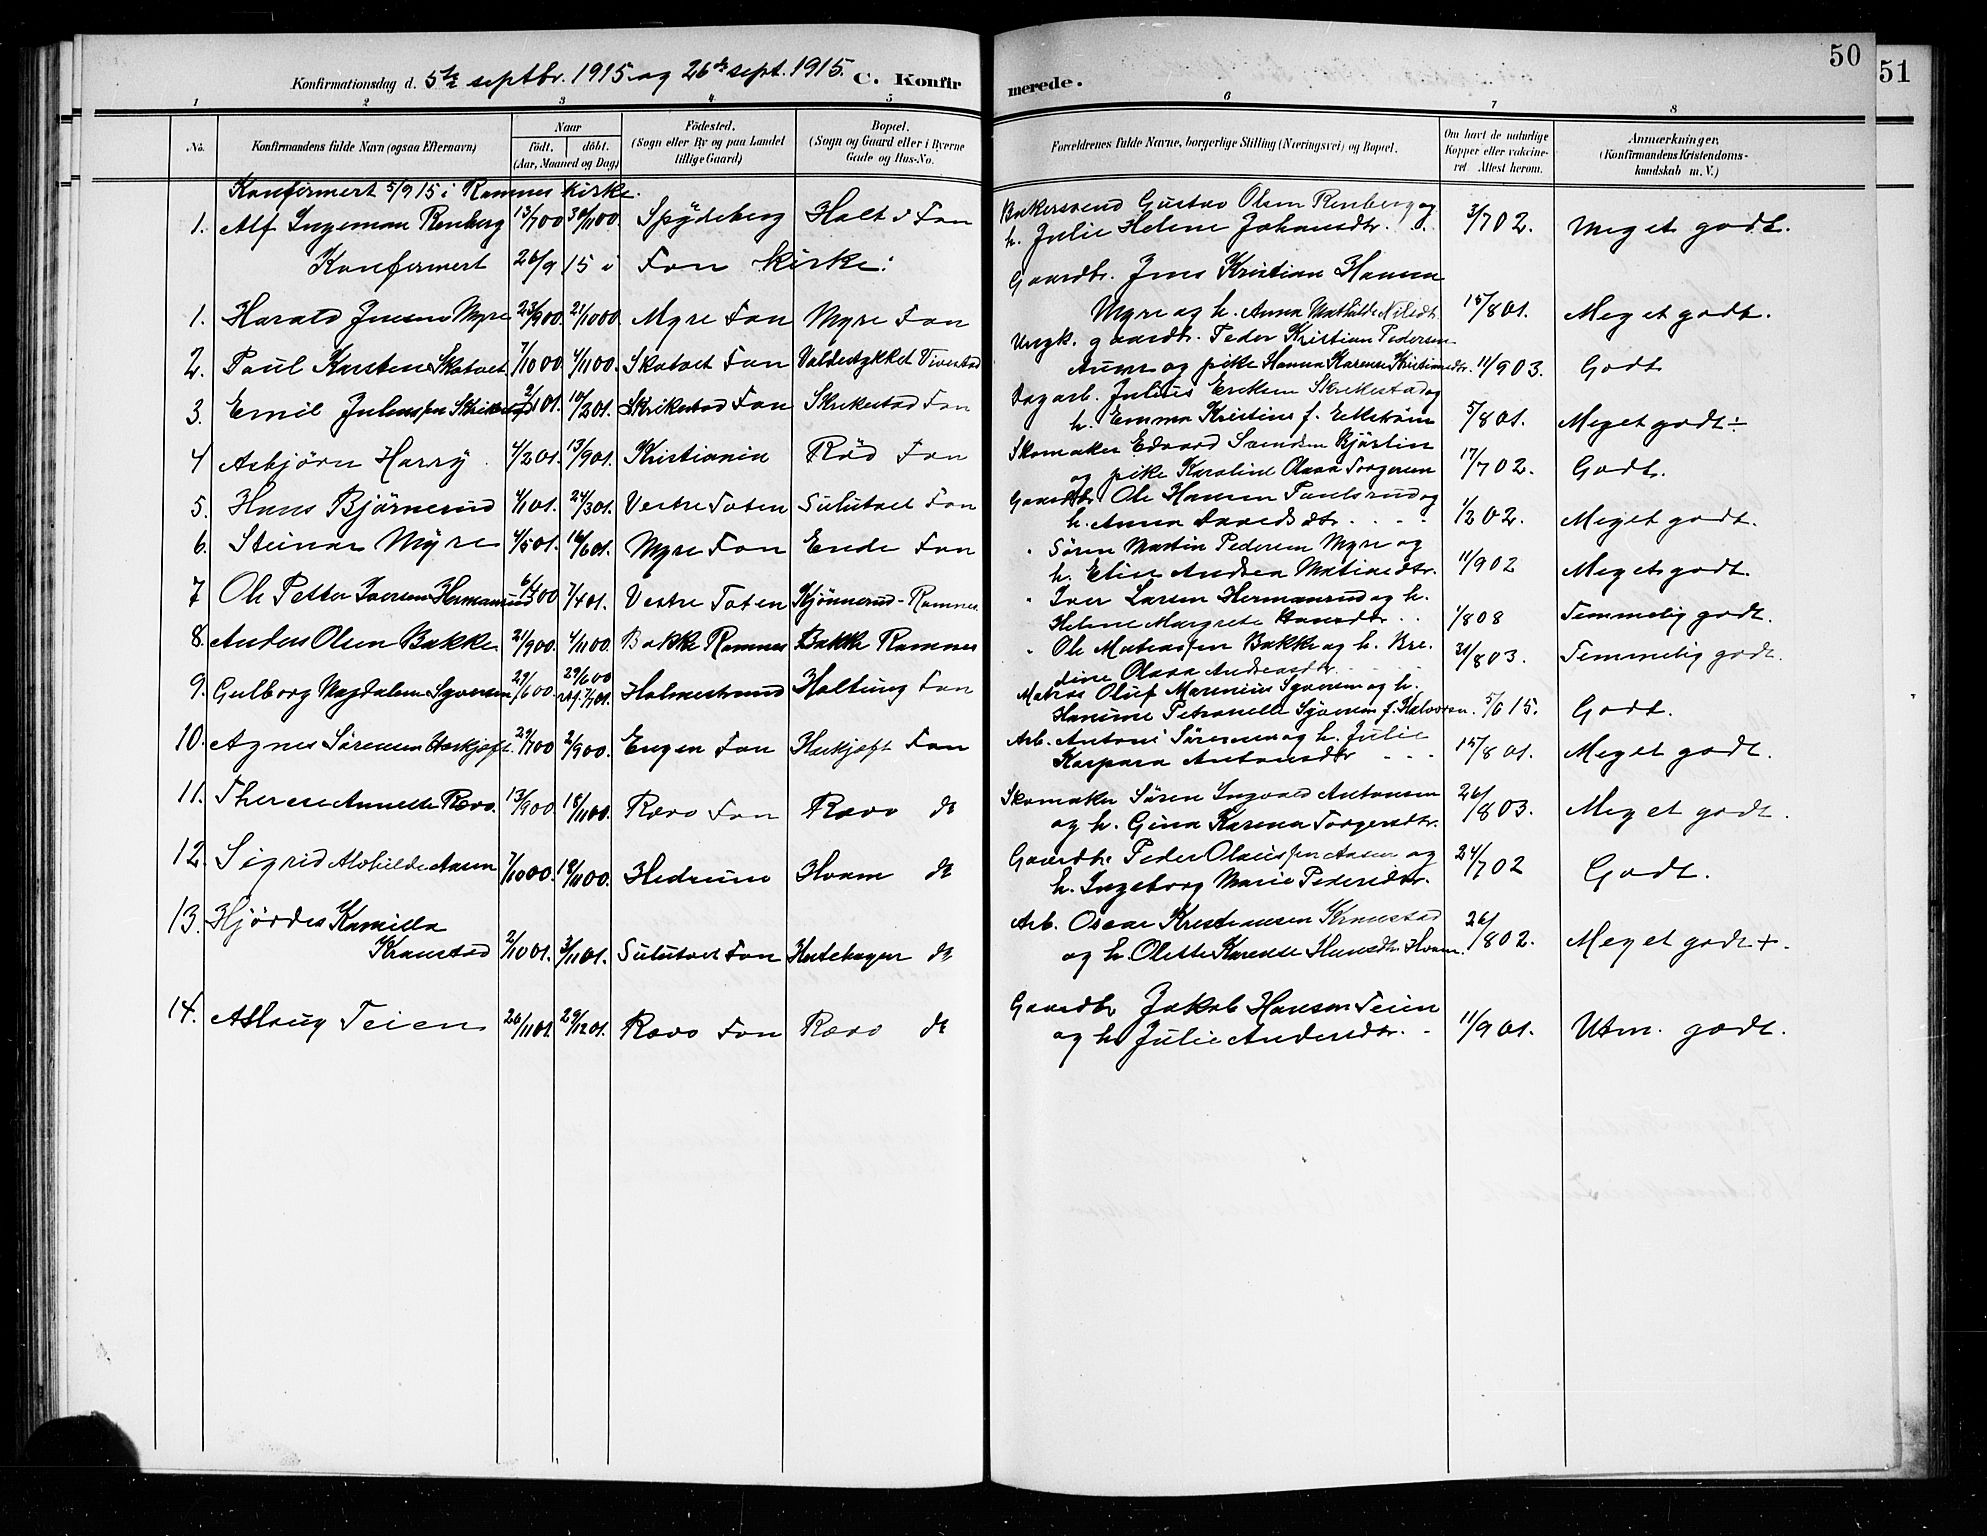 50
51
Konfirmationsdag d. 5te septbr. 1915 og 26de sept. 1915. C. Konfir
merede.
1 2 3 4 5 6 7 8
No. Konfirmandens fulde Navn (ogsaa Efternavn) Naar født, døbt. (Aar, Maaned og Dag) Fødested. (Sogn eller By og paa Landet tillige Gaard) Bopæl. (Sogn og Gaard eller i Byerne Gade og Hus-No. Forældrenes fulde Navne, borgerlige Stilling (Næringsvei) og Bopæl. Om havt de naturlige Kopper eller vakcineret Attest herom. Anmærkninger. (Konfirmandens Kristendomskundskab m. V.)
Konfirmert 5/9 15 i Ramnes kirke.
1. Alf Ingeman Renberg 13/7 00 30/11 00. Spydeberg Holt i Fon Bakersvend Gustav Olsen Renberg og
h. Julie Helene Johansdtr. 3/7 02. Meget godt.
Konfirmert 26/9 15 i Fon kirke:
1. Harald Jensen Myre 23/9 00. 21/10 00. Myre Fon Myre Fon Gaardbr. Jens Kristian Hansen
Myre og h. Anna Mathilde Nilsdtr. 15/8 01. Meget godt.
2. Paul Karsten Skatvet 7/10 00 4/11 00. Skatvet Fon Valdestykket Vivestad Ungk. gaardbr. Peder Kristian Pedersen
og pike Hanna Karense Kristiansdtr. 11/9 03. Godt
3. Emil Juliussen Skrikestad 2/1 01. 10/2 01. Skrikestad Fon Skrikestad Fon Dagarb. Julius Eriksen Skrikestad og
h. Emma Kristine f. Eckström 5/8 01. Meget godt ÷
4 Asbjörn Harry 4/2 01. 13/9 01. Kristiania Röd Fon Skomaker Edvard Svendsen
og pike Karoline Olava Torgersen 17/7 02. Godt.
5. Hans Björnerud 4/1 01. 24/3 01. Vestre Toten Sulutvet Fon Gaardbr. Ole Hansen Paulsrud og
h. Anna Davidsdtr. 1/2 02. Meget godt.
6. Steinar Myre 4/5 01. 16/6 01. Myre Fon Ende Fon " Sören Martin Pedersen Myre og
h. Elise Andrea Matiasdtr. 11/9 02 Meget godt.
7 Ole Petter Iversen Hermansrud 6/4 00 7/4 01. Vestre Toten Kjönnerud - Ramnes " Iver Larsen Hermansrud og h.
Helene Margrete Hansdtr. 1/8 08 Temmelig godt.
8. Anders Olsen Bakke 21/9 00. 4/11 00. Bakke Ramnes Bakke Ramnes " Ole Mathiassen Bakke og h. Bredine
Olava Andreasdtr. 21/8 03. Temmelig godt.
9. Gulborg Magdalene Syversen 29/6 00. 29/6 00 7/1 01. Holmestrand Holtung Fon Matros Oluf Marenius Syversen og h.
Hanine Petronelle Syversen f. Halvorsen. 5/6 15. Godt.
10. Agnes Sörensen Haskjöft. 29/7 00 2/9 00. Engen Fon Haskjöft Fon Arb. Antoni Sörensen og h. Julie
Kaspara Antonsdtr 15/8 01. Meget godt.
11. Therese Annette Rævo. 13/9 00. 18/11 00. Rævo Fon Rævo do Skomaker Sören Ingvald Antonsen
og h. Gina Karena Torgersdtr. 26/8 03. Meget godt.
12. Sigrid Alvhilde Aasen 7/10 00. 18/11 00. Hedrum Hvam do Gaardbr. Peder Olaussen Aasen og
h. Ingeborg Marie Pedersdtr. 24/7 02 Godt.
13. Hjördis Kamilla
Kranstad 2/10 01. 3/11 01. Sulutvet Fon Hatehagen do Arb. Oscar Kristiansen Kranstad
og h. Olette Karense Hansdtr. Hvam. 26/8 02. Meget godt +.
14. Aslaug Teien 26/11 01. 29/12 01. Rævo Fon Rævo do Gaardbr Jakob Hansen Teien
og h. Julie Andersdtr. 11/9 01. Utm. godt.